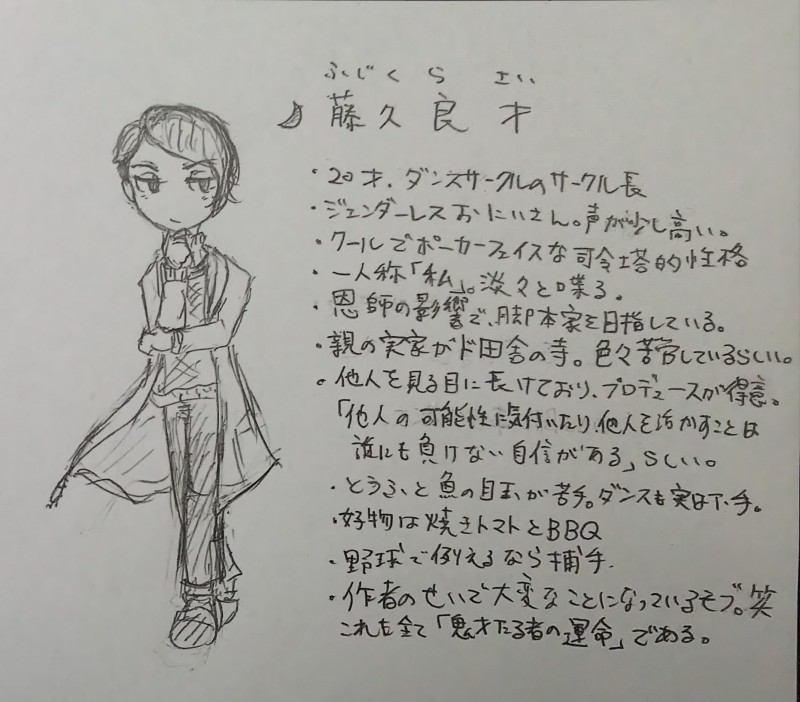 ふじくら さい
藤久良才
・20才。ダンスサークルのサークル長
・ジェンダーレスおにいさん。声が少し高い。
・クールでポーカーフェイスな司令塔的性格
・一人称「私」。淡々と喋る。
・恩師の影響で、脚本家を目指している。
・親の実家がド田舎の寺。色々苦労しているらしい。
・他人を見る目に長けており、プロデュースが得意。
「他人の可能性に気付いたり、他人を活かすことは
誰にも負けない自信がある」らしい。
・とうふと魚の目玉が苦手。ダンスも実は下手。
・好物は焼きトマトとBBQ
・野球で例えるなら捕手。
・作者のせいで大変なことになっているモブ。笑
これも全て「鬼才たる者の運命」である。